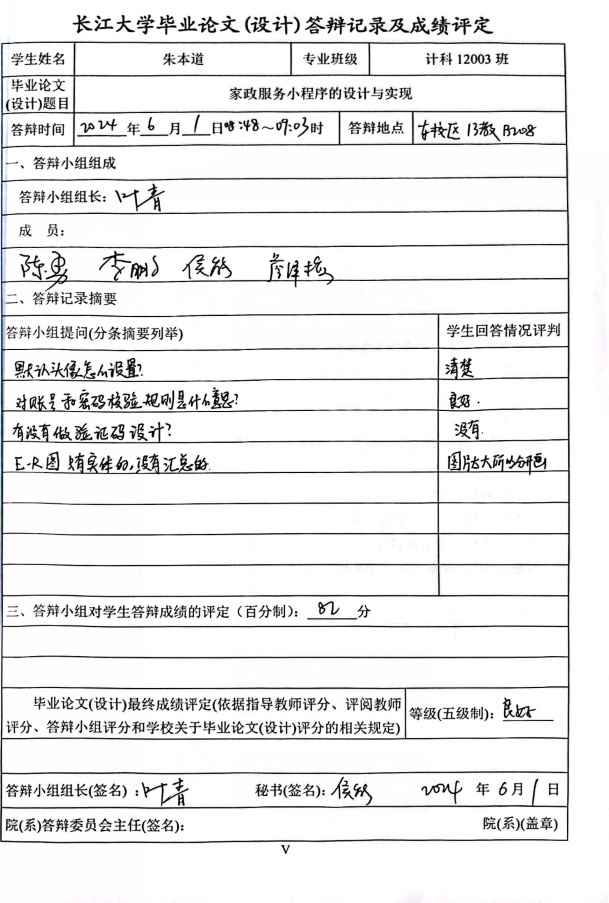 长江大学毕业论文(设计)答辩记录及成绩评定
学生姓名 朱本道 专业班级 计科 12003 班
毕业论文(设计)题目 家政服务小程序的设计与实现
答辩时间 2024 年 6 月 1 日 08:48～09:03时 答辩地点 东校区 13教 B208
一、答辩小组组成
答辩小组组长: 叶青
成 员:
陈勇 李鹏 侯
二、答辩记录摘要
答辩小组提问(分条摘要列举) 学生回答情况评判
默认头像怎么设置? 清楚
对账号和密码校验规则是什么意思? 良好.
有没有做验证码设计? 没有.
E-R图只有实体的,没有汇总的. 图片太大所以分开画
三、答辩小组对学生答辩成绩的评定（百分制）: 82 分
毕业论文(设计)最终成绩评定(依据指导教师评分、评阅教师评分、答辩小组评分和学校关于毕业论文(设计)评分的相关规定) 等级(五级制): 良好
答辩小组组长(签名): 叶青 秘书(签名): 侯 2024 年 6 月 1 日
院(系)答辩委员会主任(签名): 院(系)(盖章)
V